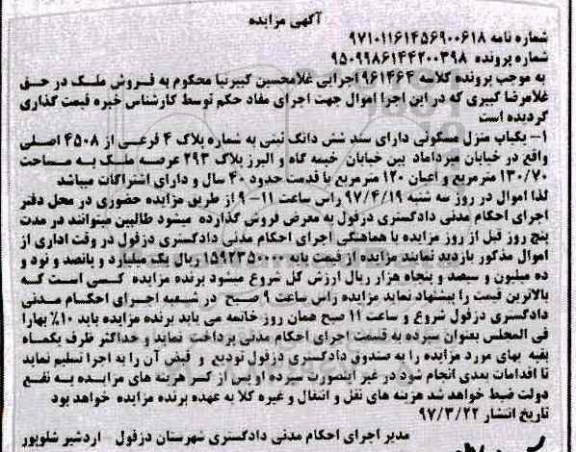 آگهی مزایده
شماره نامه ۹۷۱۰۱۱۶۱۴۵۶۹۰۰۶۱۸
شماره پرونده ۹۵۰۹۹۸۶۱۴۴۲۰۰۳۹۸
به موجب پرونده کلاسه ۹۶۱۴۶۴ اجرایی غلامحسین کبیرنیا محکوم به فروش ملک در حق
غلامرضا کبیری که در این اجرا اموال جهت اجرای مفاد حکم توسط کارشناس خبره قیمت گذاری
گردیده است
۱- یکباب منزل مسکونی دارای سند شش دانگ ثبتی به شماره پلاک ۴ فرعی از ۴۵۰۸ اصلی
واقع در خیابان میرداماد بین خیابان خیمه گاه و البرز پلاک ۲۹۳ عرصه ملک به مساحت
۱۳۰/۷۰ مترمربع و اعیان ۱۲۰ مترمربع با قدمت حدود ۴۰ سال و دارای اشتراکات میباشد
لذا اموال در روز سه شنبه ۹۷/۴/۱۹ راس ساعت ۱۱-۹ از طریق مزایده حضوری در محل دفتر
اجرای احکام مدنی دادگستری دزفول به معرض فروش گذارده میشود طالبین میتوانند در مدت
پنج روز قبل از روز مزایده با هماهنگی اجرای احکام مدنی دادگستری دزفول در وقت اداری از
اموال مذکور بازدید نمایند مزایده از قیمت پایه ۱۵۹۲۳۵۰۰۰۰ ریال یک میلیارد و پانصد و نود و
ده میلیون و سیصد و پنجاه هزار ریال ارزش کل شروع میشود برنده مزایده کسی است که
بالاترین قیمت را پیشنهاد نماید مزایده راس ساعت ۹ صبح در شعبه اجرای احکام مدنی
دادگستری دزفول شروع و ساعت ۱۱ صبح همان روز خاتمه می یابد برنده مزایده باید ۱۰٪ بهارا
فی المجلس بعنوان سپرده به قسمت اجرای احکام مدنی پرداخت نماید و حداکثر ظرف یکماه
بقیه بهای مورد مزایده را به صندوق دادگستری دزفول تودیع و قبض آن را به اجرا تسلیم نماید
تا اقدامات بعدی انجام شود در غیر اینصورت سپرده او پس از کسر هزینه های مزایده به نفع
دولت ضبط خواهد شد هزینه های نقل و انتقال و غیره کلا به عهده برنده مزایده خواهد بود
تاریخ انتشار ۹۷/۳/۲۲
مدیر اجرای احکام مدنی دادگستری شهرستان دزفول - اردشیر شلویور